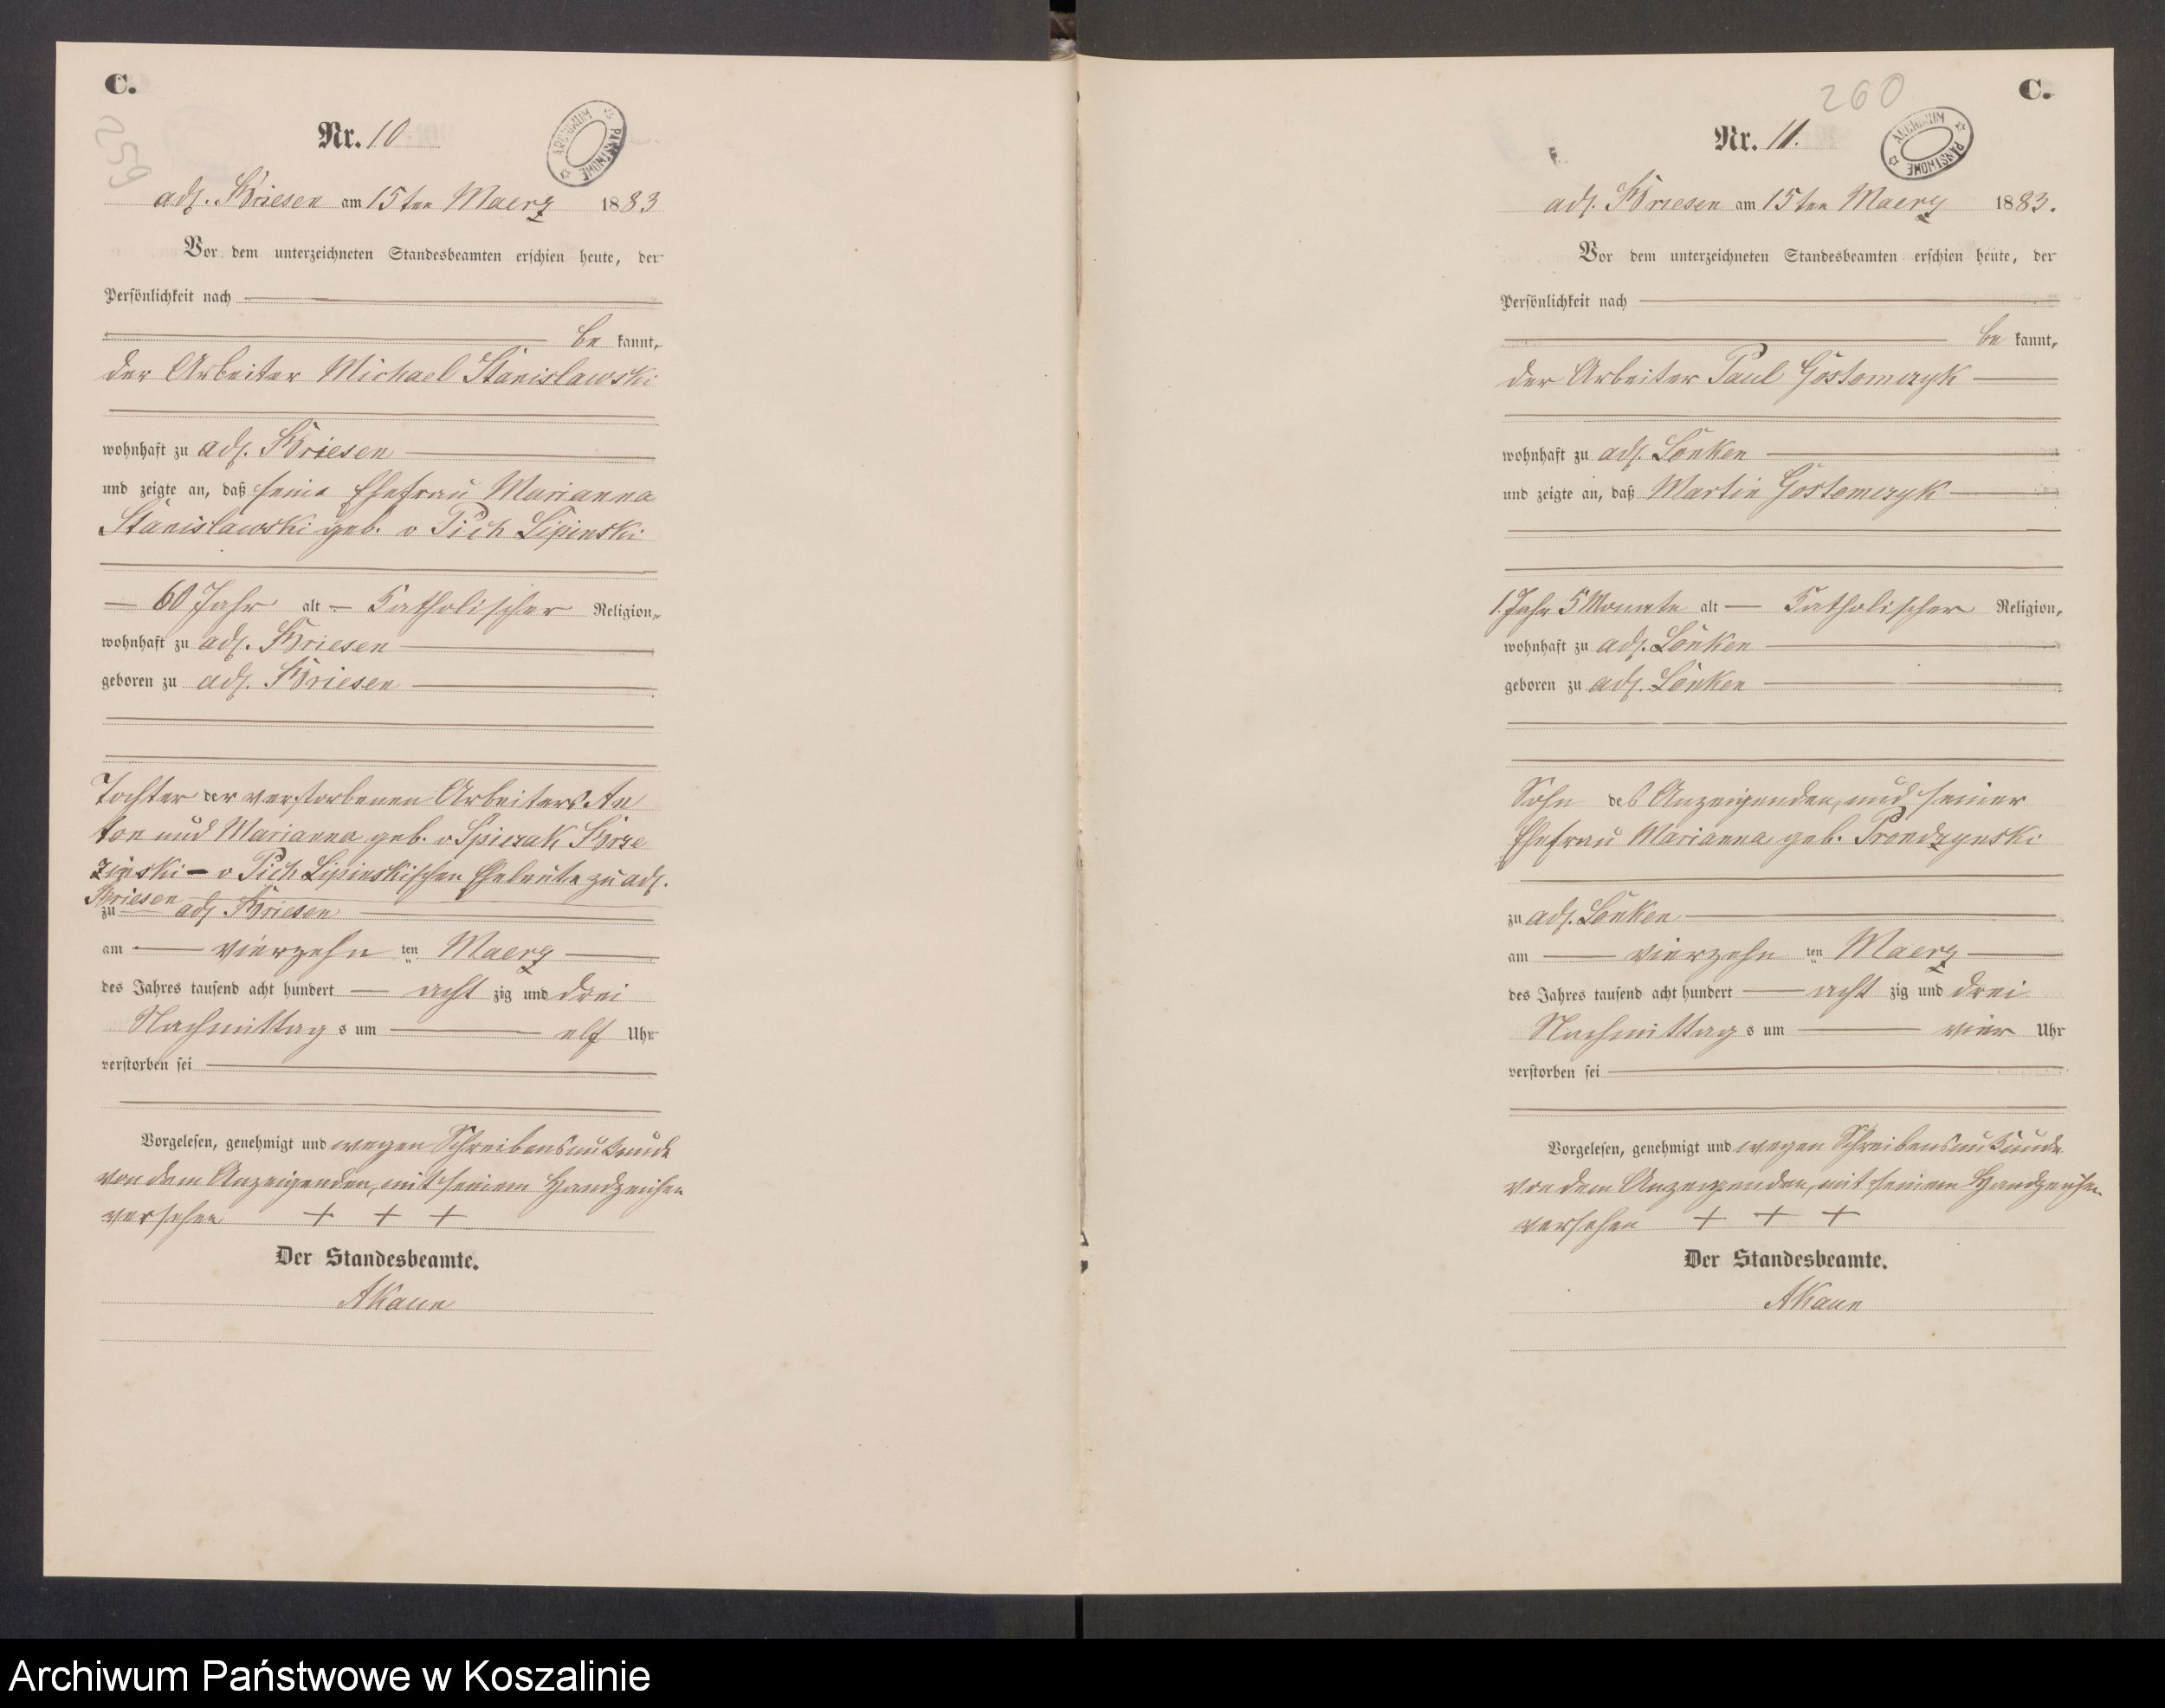 C.
259
Nr. 10
ARCHIWUM PAŃSTWOWE
adl. Briesen am 15ten Maerz 1883
Vor dem unterzeichneten Standesbeamten erschien heute, der
Persönlichkeit nach
be kannt,
der Arbeiter Michael Stanislawski
wohnhaft zu adl. Briesen
und zeigte an, daß seine Ehefrau Marianna
Stanislawski geb. v Pich Lipinski
60 Jahr alt Katholischer Religion,
wohnhaft zu adl. Briesen
geboren zu adl. Briesen
Tochter der verstorbenen Arbeiters An
ton und Marianna geb. v Spiczak Brze
zinski - v Pich Lipinskischen Eheleute zu adl.
Briesen
zu adl Briesen
am vierzehn ten Maerz
des Jahres tausend acht hundert acht zig und drei
Nachmittag s um elf Uhr
verstorben sei
Vorgelesen, genehmigt und wegen Schreibensunkunde
von dem Anzeigenden, mit seinem Handzeichen
versehen + + +
Der Standesbeamte.
AKaun
C.
260
Nr. 11.
ARCHIWUM PAŃSTWOWE
adl. Briesen am 15ten Maerz 1883.
Vor dem unterzeichneten Standesbeamten erschien heute, der
Persönlichkeit nach
be kannt,
der Arbeiter Paul Gostomczyk
wohnhaft zu adl. Lonken
und zeigte an, daß Martin Gostomczyk
1. Jahr 5 Monate alt Katholischer Religion,
wohnhaft zu adl. Lonken
geboren zu adl. Lonken
Sohn des Anzeigenden, und seiner
Ehefrau Marianna geb. Prondzynski
zu adl. Lonken
am vierzehn ten Maerz
des Jahres tausend acht hundert acht zig und drei
Nachmittag s um vier Uhr
verstorben sei
Vorgelesen, genehmigt und wegen Schreibensunkunde
von dem Anzeigenden, mit seinem Handzeichen
versehen + + +
Der Standesbeamte.
AKaun
Archiwum Państwowe w Koszalinie